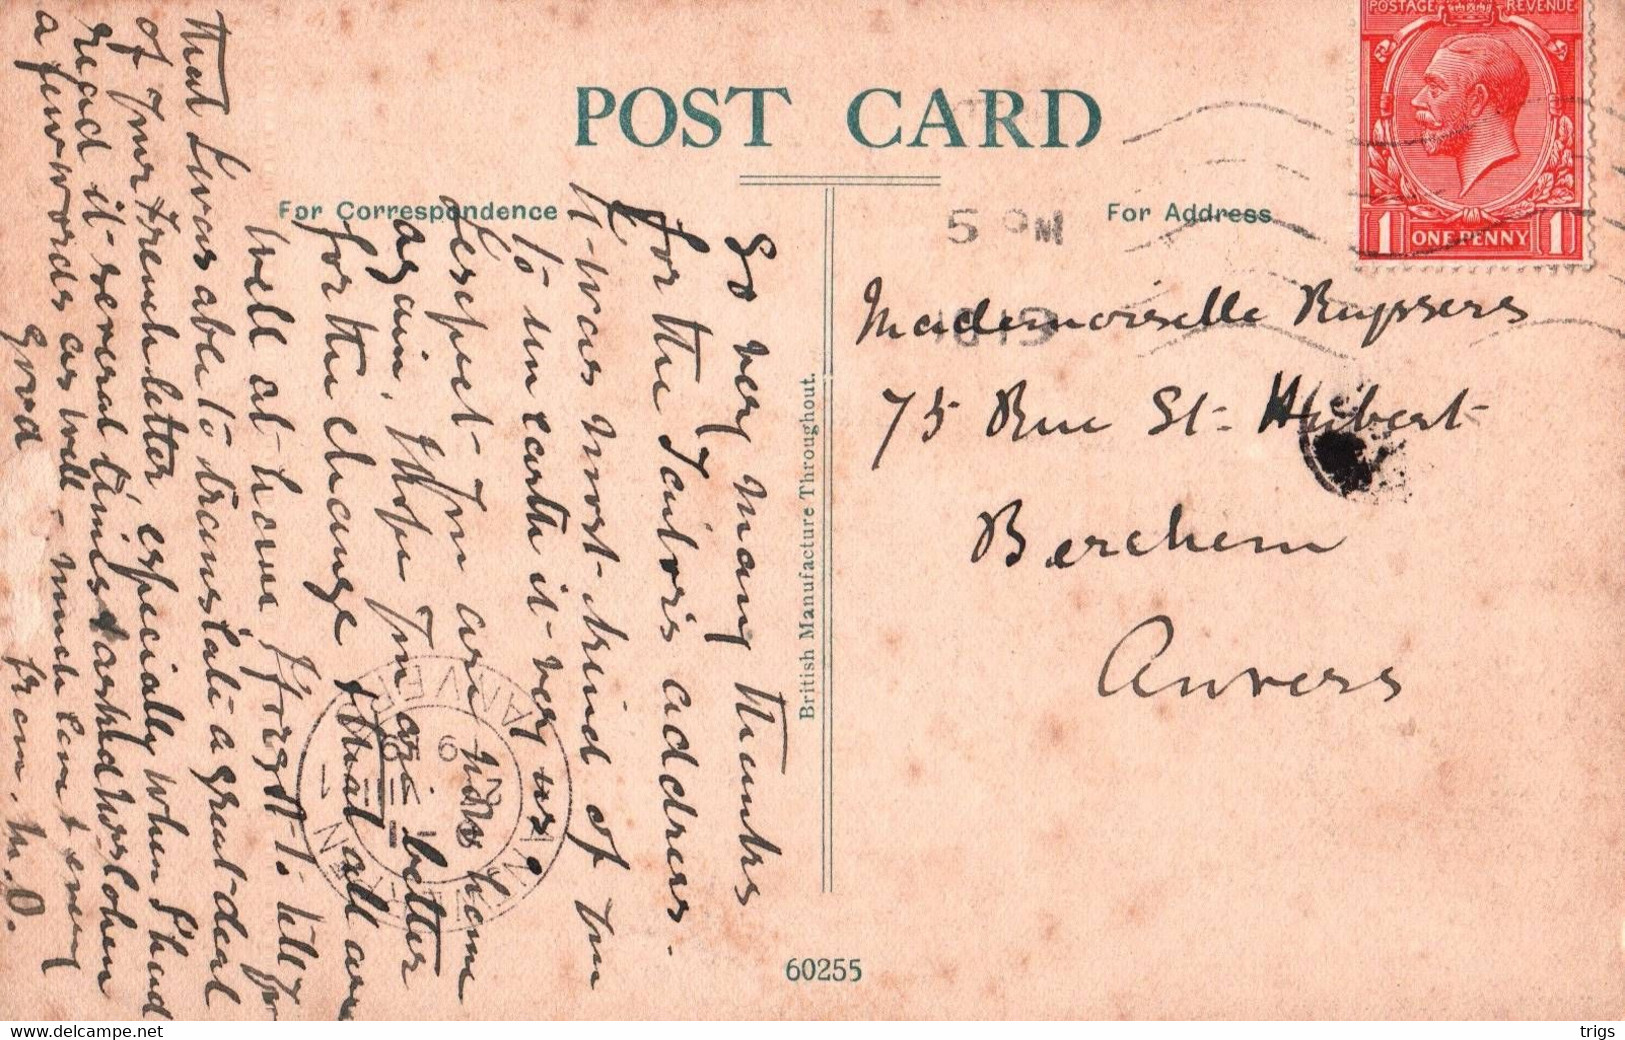 POSTAGE REVENUE
1 ONE PENNY 1
POST CARD
For Correspondence
For Address
5 PM
1919
Mademoiselle Ruyssers
75 Rue St. Hubert
Berchem
Anvers
British Manufacture Throughout.
60255
So very many thanks
for the Tailor's address.
It was most kind of you
to un earth it very us
respect you are now home
again, I hope you are better
for the change & that all are
well at home. I forgot to tell you
that I was able to translate a great deal
of your French letter, especially when I had
read it several times & asked
a few words as well. Much love to every
from M. O.
trigs
www.delcampe.net